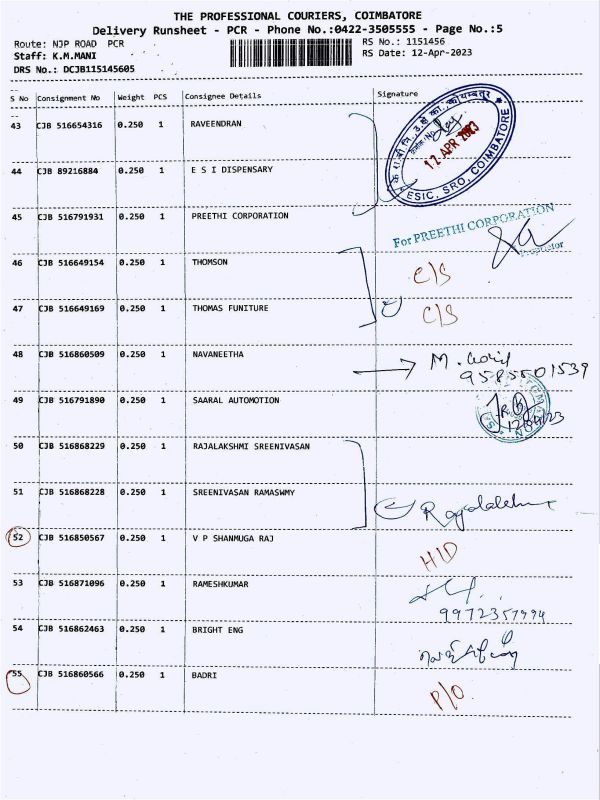 THE PROFESSIONAL COURIERS, COIMBATORE
Delivery Runsheet - PCR - Phone No.:0422-3505555 - Page No.:5
Route: NJP ROAD PCR
RS No.: 1151456
Staff: K.M.MANI
RS Date: 12-Apr-2023
DRS No.: DCJB115145605
S No Consignment No Weight PCS Consignee Details Signature
43 CJB 516654316 0.250 1 RAVEENDRAN
12 APR 2023
ESIC, SRO, COIMBATORE
44 CJB 89216884 0.250 1 E S I DISPENSARY
45 CJB 516791931 0.250 1 PREETHI CORPORATION
For PREETHI CORPORATION
Proprietor
46 CJB 516649154 0.250 1 THOMSON C/S
47 CJB 516649169 0.250 1 THOMAS FUNITURE C/S
48 CJB 516860509 0.250 1 NAVANEETHA M.
9585501539
49 CJB 516791890 0.250 1 SAARAL AUTOMOTION
50 CJB 516868229 0.250 1 RAJALAKSHMI SREENIVASAN
51 CJB 516868228 0.250 1 SREENIVASAN RAMASWMY
52 CJB 516850567 0.250 1 V P SHANMUGA RAJ H/D
53 CJB 516871096 0.250 1 RAMESHKUMAR
54 CJB 516862463 0.250 1 BRIGHT ENG
55 CJB 516860566 0.250 1 BADRI P/O